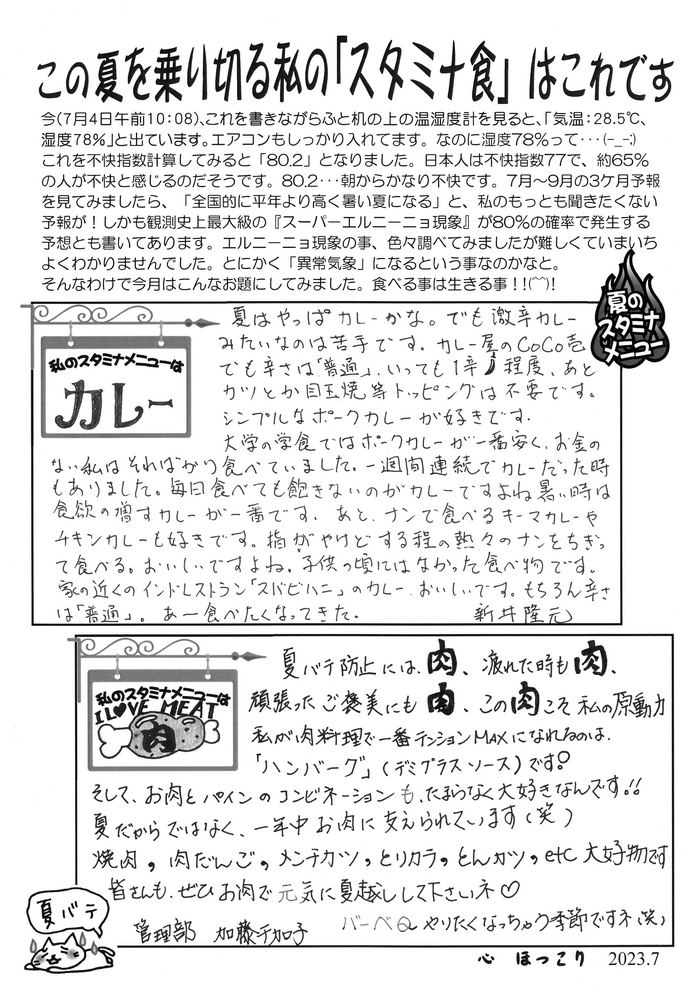 この夏を乗り切る私の「スタミナ食」はこれです
今(7月4日午前10:08)、これを書きながらふと机の上の温湿度計を見ると、「気温:28.5℃、
湿度78%」と出ています。エアコンもしっかり入れてます。なのに湿度78%って・・・(-_-;)
これを不快指数計算してみると「80.2」となりました。日本人は不快指数77で、約65%
の人が不快と感じるのだそうです。80.2・・・朝からかなり不快です。7月~9月の3ケ月予報
を見てみましたら、「全国的に平年より高く暑い夏になる」と、私のもっとも聞きたくない
予報が!しかも観測史上最大級の『スーパーエルニーニョ現象』が80%の確率で発生する
予想とも書いてあります。エルニーニョ現象の事、色々調べてみましたが難しくていまいち
よくわかりませんでした。とにかく「異常気象」になるという事なのかなと。
そんなわけで今月はこんなお題にしてみました。食べる事は生きる事!!(^^)!
夏の
スタミナ
メニュー
私のスタミナメニューは
カレー
夏はやっぱカレーかな。でも激辛カレー
みたいなのは苦手です。カレー屋のCoCo壱
でも辛さは「普通」、いっても1辛程度、あと
カツとか目玉焼等トッピングは不要です。
シンプルなポークカレーが好きです。
大学の学食ではポークカレーが一番安く、お金の
ない私はそればかり食べていました。一週間連続でカレーだった時
もありました。毎日食べても飽きないのがカレーですよね暑い時は
食欲の増すカレーが一番です。あと、ナンで食べるキーマカレーや
チキンカレーも好きです。指がやけどする程の熱々のナンをちぎっ
て食べる。おいしいですよね。子供の頃にはなかった食べ物です。
家の近くのインドレストラン「スバビハニ」のカレー、おいしいです。もちろん辛さ
は「普通」。あー食べたくなってきた。 新井隆元
私のスタミナメニューは
I LOVE MEAT
肉
夏バテ防止には、肉、疲れた時も肉、
頑張ったご褒美にも肉、この肉こそ私の原動力
私が肉料理で一番テンションMAXになれるのは、
「ハンバーグ」(デミグラスソース)です!
そして、お肉とパインのコンビネーションも、たまらなく大好きなんです!!
夏だからではなく、一年中お肉に支えられています(笑)
焼肉，肉だんご，メンチカツ，とりカラ，とんカツ，etc 大好物です
皆さんも、ぜひお肉で元気に夏越しして下さいネ♡
管理部 加藤千加子 バーベQやりたくなっちゃう季節ですネ(笑)
夏バテ
心 ほっこり 2023.7